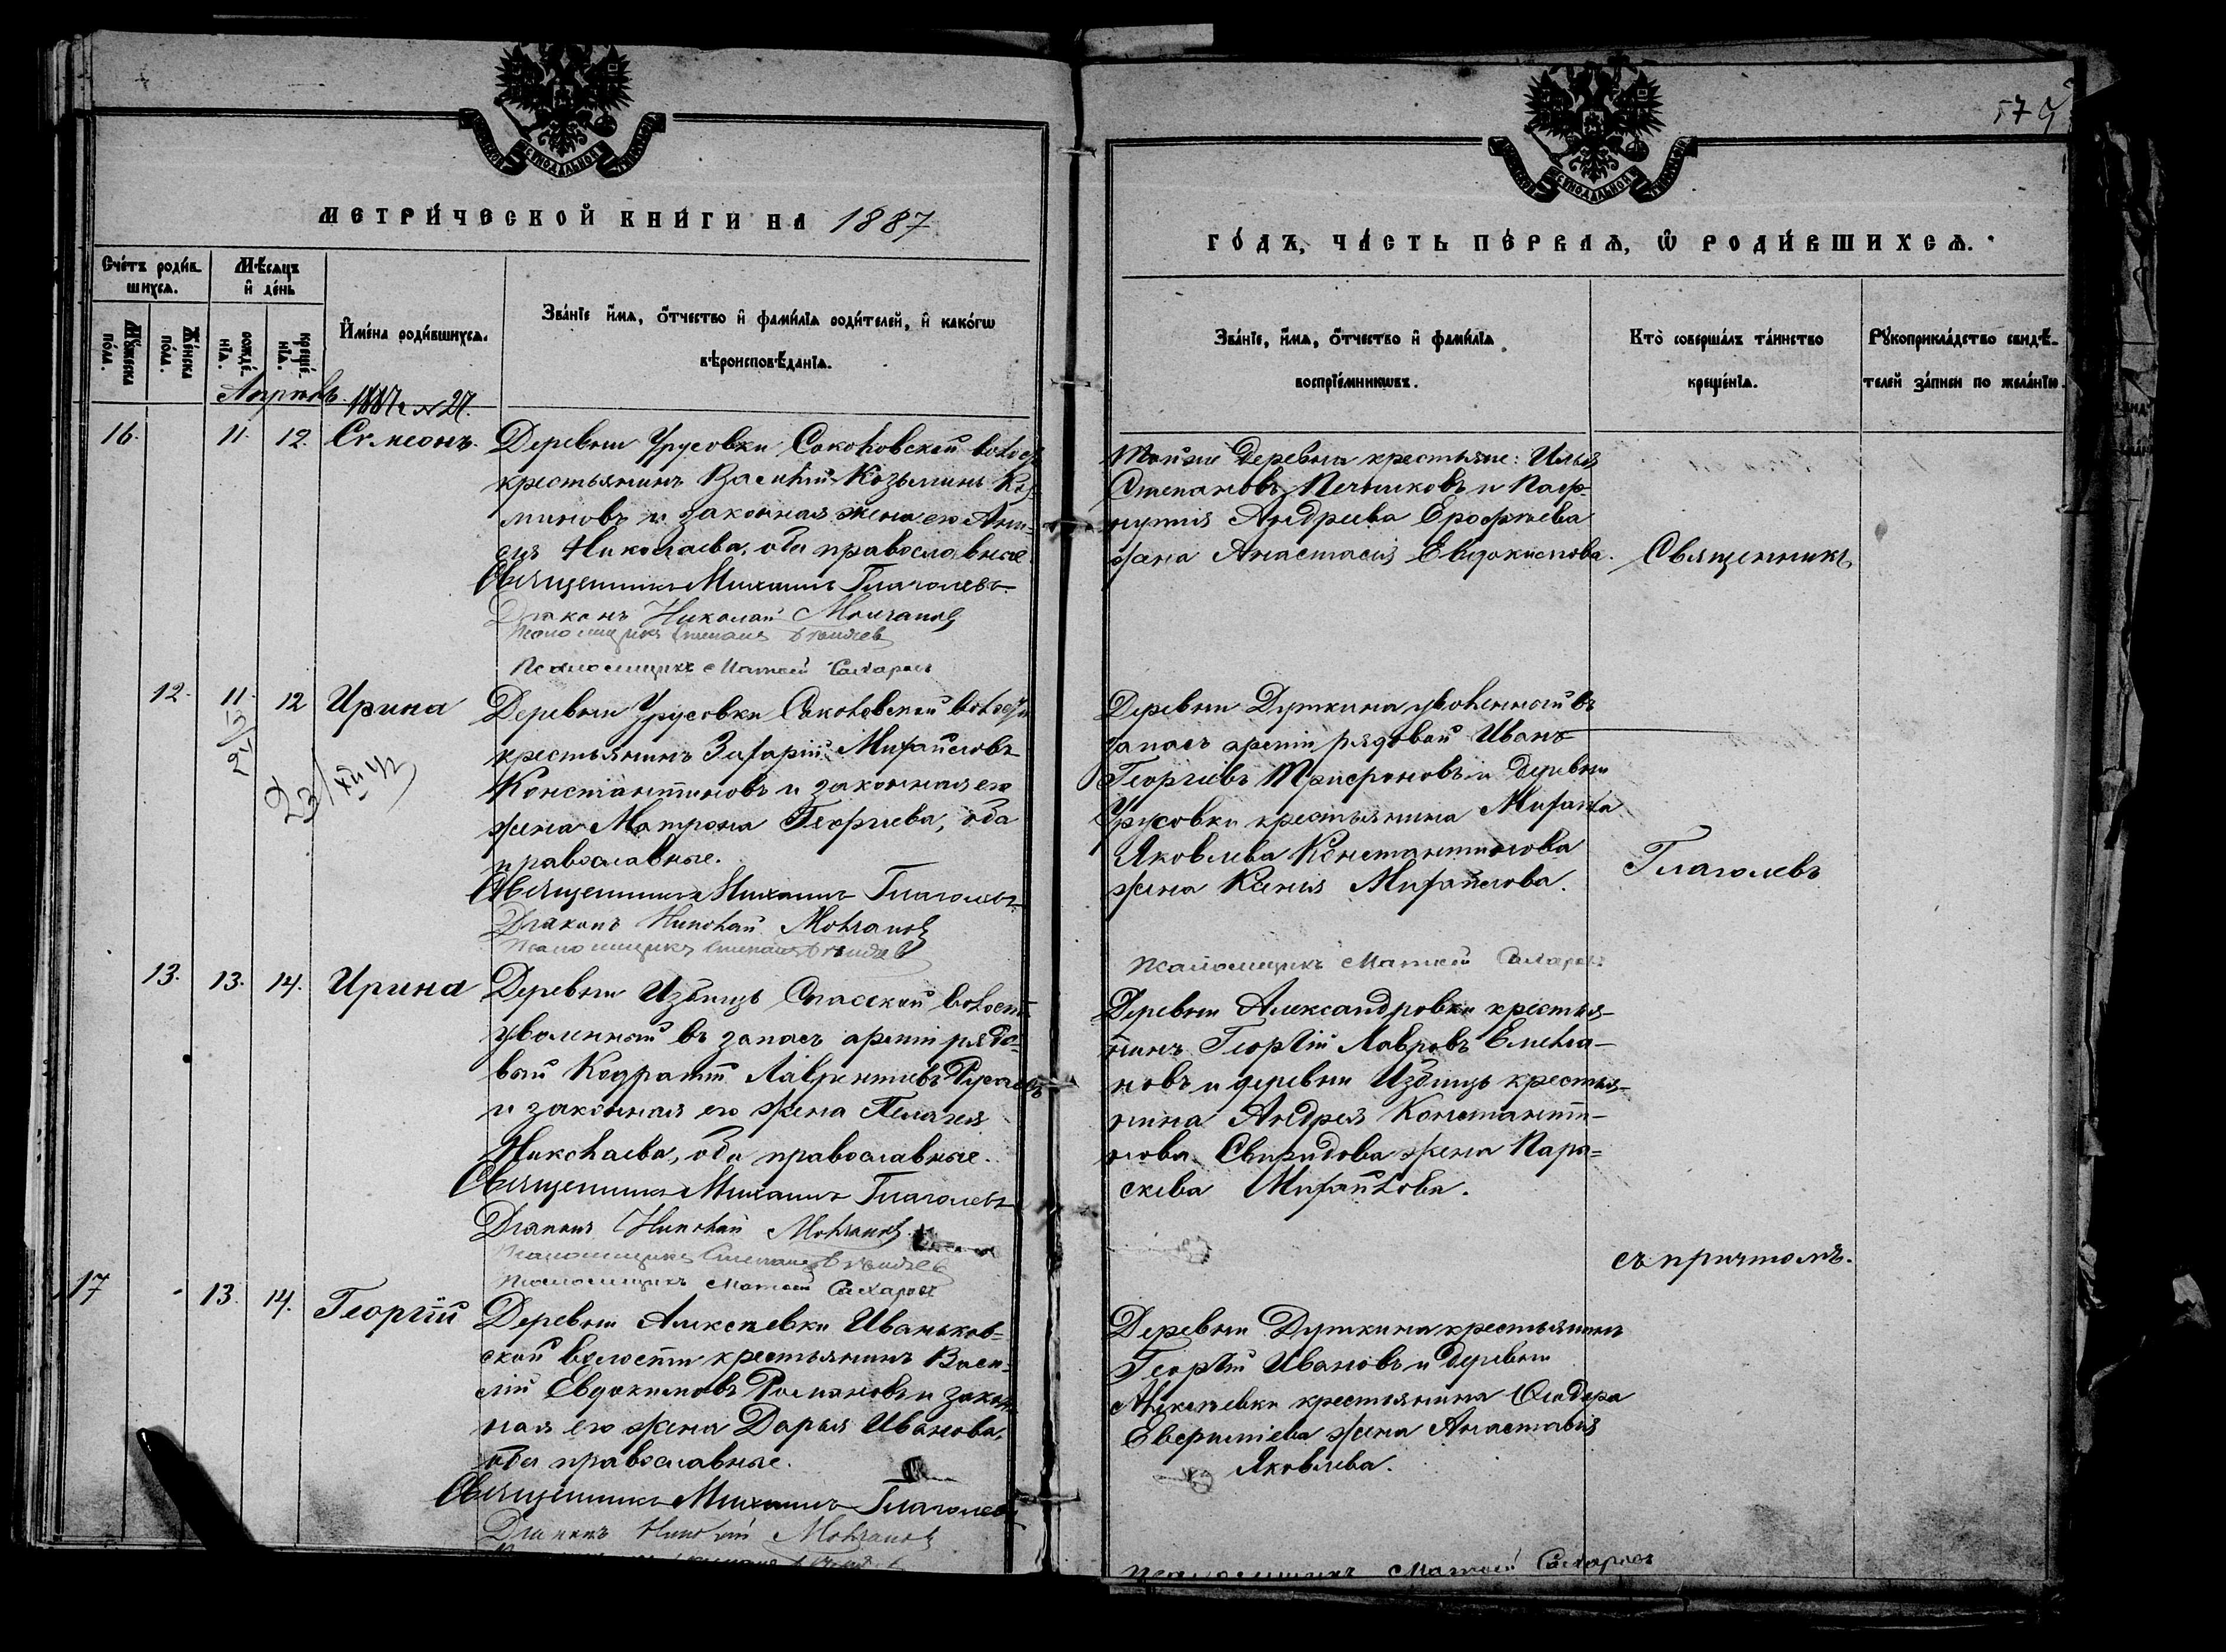 574
МЕТРИ́ЧЕСКОЙ КНИ́ГИ НА 1887
ГО́ДЪ, ЧА́СТЬ ПЕ́РВАѦ, Ѡ҆ РОДИ́ВШИХСѦ.
Сче́тъ роди́в-
шихсѧ.
Мѣ́сѧцъ
и҆ де́нь
Мꙋ́жеска
по́ла.
Же́нска
по́ла.
рожде́-
нїѧ.
креще́-
нїѧ.
И҆мена̀ роди́вшихсѧ.
Зва́нїе и҆́мѧ, ѻ҆́тчество и҆ фами́лїѧ роди́телей, и҆ како́гѡ
вѣроисповѣ́данїѧ.
Зва́нїе, и҆́мѧ, ѻ҆́тчество и҆ фами́лїѧ
воспрїе́мникѡвъ.
Кто̀ соверша́лъ та́инство
креще́нїѧ.
Рꙋкоприкла́дство свидѣ́-
телей за́писи по жела́нїю.
Апрѣль.
16. 11. 12. Сѵмеонъ.
Деревни Урусовки Соколовской волост
крестьянинъ Василій Козьминъ
миновъ и законная жена его Ани-
сья Николаева, оба православные
Священникъ Михаилъ Глаголевъ.
Діаконъ Николай Молчановъ
Псаломщикъ Стефанъ
Псаломщикъ Матѳей Сахаровъ
Тойже деревни крестьяне: Илья
Степановъ Печниковъ и Паф-
нутія Андреева Ерофѣева
жена Анастасія Евдокимова.
Священникъ
12. 11. 12 Ирина
Деревни Урусовки Соколовской волости
крестьянинъ Захарій Михайловъ
Константиновъ и законная его
жена Матрона Георгиева, оба
православные.
Священникъ Михаилъ Глаголевъ
Діаконъ Николай Молчановъ
Псаломщикъ Стефанъ
Деревни Дуткина уволенный въ
запасъ арміи рядовой Иванъ
Георгіевъ и деревни
Урусовки крестьянина
Яковлева Константинова
жена Ксенія Михайлова.
Псаломщикъ Матѳей Сахаровъ
Глаголевъ
13. 13. 14. Ирина
Деревни Избищъ Спасской волост
уволенный въ запасъ арміи рядо-
вый Кодратъ Лаврентіевъ
и законная его жена Пелагея
Николаева, оба православные.
Священникъ Михаилъ Глаголевъ
Діаконъ Николай Молчановъ
Псаломщикъ Стефанъ
Псаломщикъ Матѳей Сахаровъ
Деревни Александровки крестья-
нинъ Георгій Лавровъ Емелья-
новъ и деревни Избищъ крестья-
нина Андрея Константи-
нова Свиридова жена Пара-
скева Михайлова.
съ причтомъ.
17 13. 14. Георгій
Деревни Алексѣевки Иваньков-
ской волости крестьянинъ Васи-
лій Евдокимовъ Романовъ и закон-
ная его жена Дарья Иванова,
оба православные.
Священникъ Михаилъ Глаголевъ
Діаконъ Николай Молчановъ
Деревни Дуткина крестьянинъ
Георгій Ивановъ и деревни
Алексѣевки крестьянина Ѳеодора
жена Анастасія
Яковлева.
Псаломщикъ Матѳей Сахаровъ